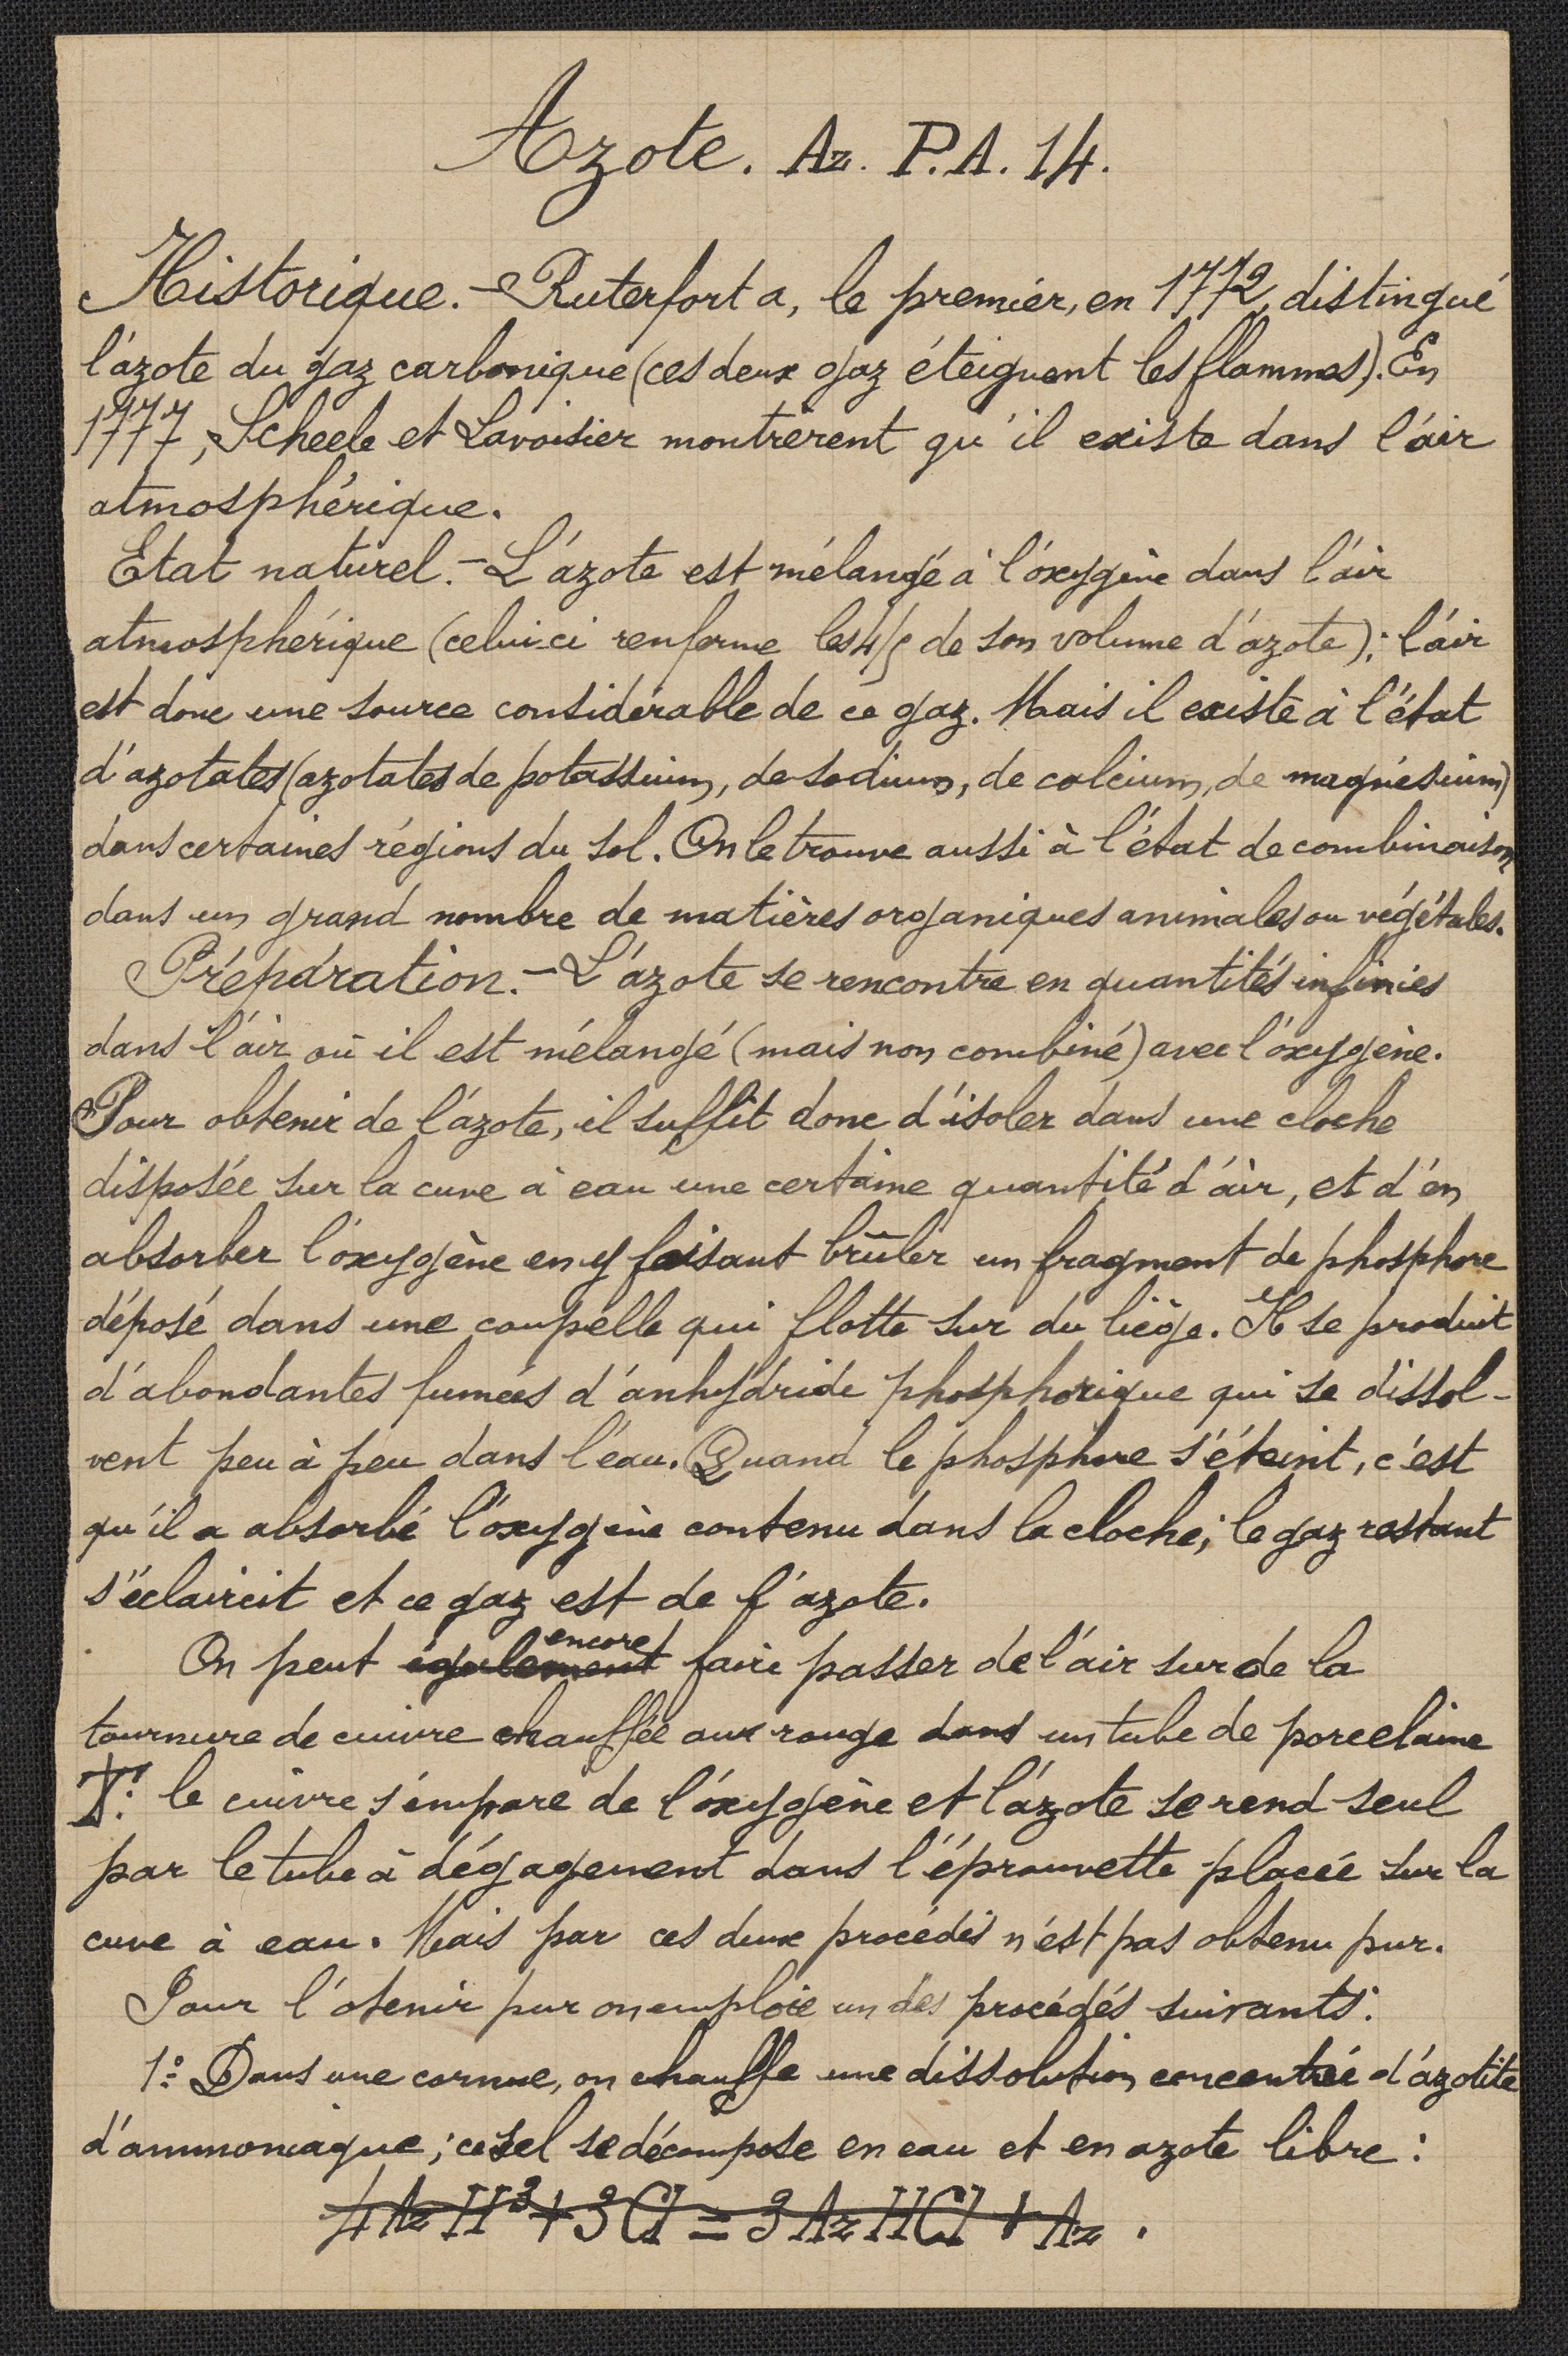 Azote. Az. P.A. 14.
Historique. - Ruterfort a, le premier, en 1772, distingué
l'azote du gaz carbonique (ces deux gaz éteignent les flammes). En
1777, Scheele et Lavoisier montrèrent qu'il existe dans l'air
atmosphérique.
Etat naturel. - L'azote est mélangé à l'oxygène dans l'air
atmosphérique (celui-ci renferme les 4/5 de son volume d'azote); l'air
est donc une source considérable de ce gaz. Mais il existe à l'état
d'azotates (azotates de potassium, de sodium, de calcium, de magnésium)
dans certaines régions du sol. On le trouve aussi à l'état de combinaison
dans un grand nombre de matières organiques animales ou végétales.
Préparation. - L'azote se rencontre en quantités infinies
dans l'air où il est mélangé (mais non combiné) avec l'oxygène.
Pour obtenir de l'azote, il suffit donc d'isoler dans une cloche
disposée sur la cuve à eau une certaine quantité d'air, et d'en
absorber l'oxygène en y faisant brûler un fragment de phosphore
déposé dans une coupelle qui flotte sur du liège. Il se produit
d'abondantes fumées d'anhydride phosphorique qui se dissol-
vent peu à peu dans l'eau. Quand le phosphore s'éteint, c'est
qu'il a absorbé l'oxygène contenu dans la cloche; le gaz restant
s'éclaircit et ce gaz est de l'azote.
On peut également encore faire passer de l'air sur de la
tournure de cuivre chauffée aux rouge dans un tube de porcelaine
T: le cuivre s'empare de l'oxygène et l'azote se rend seul
par le tube à dégagement dans l'éprouvette placée sur la
cuve à eau. Mais par ces deux procédés n'est pas obtenu pur.
Pour l'otenir pur on emploie un des procégés suivants:
1º: Dans une cornue, on chauffe une dissolution concentrée d'azotite
d'ammoniaque; ce sel se décompose en eau et en azote libre:
4AzH³ + 3Cl = 3AzHCl + Az.